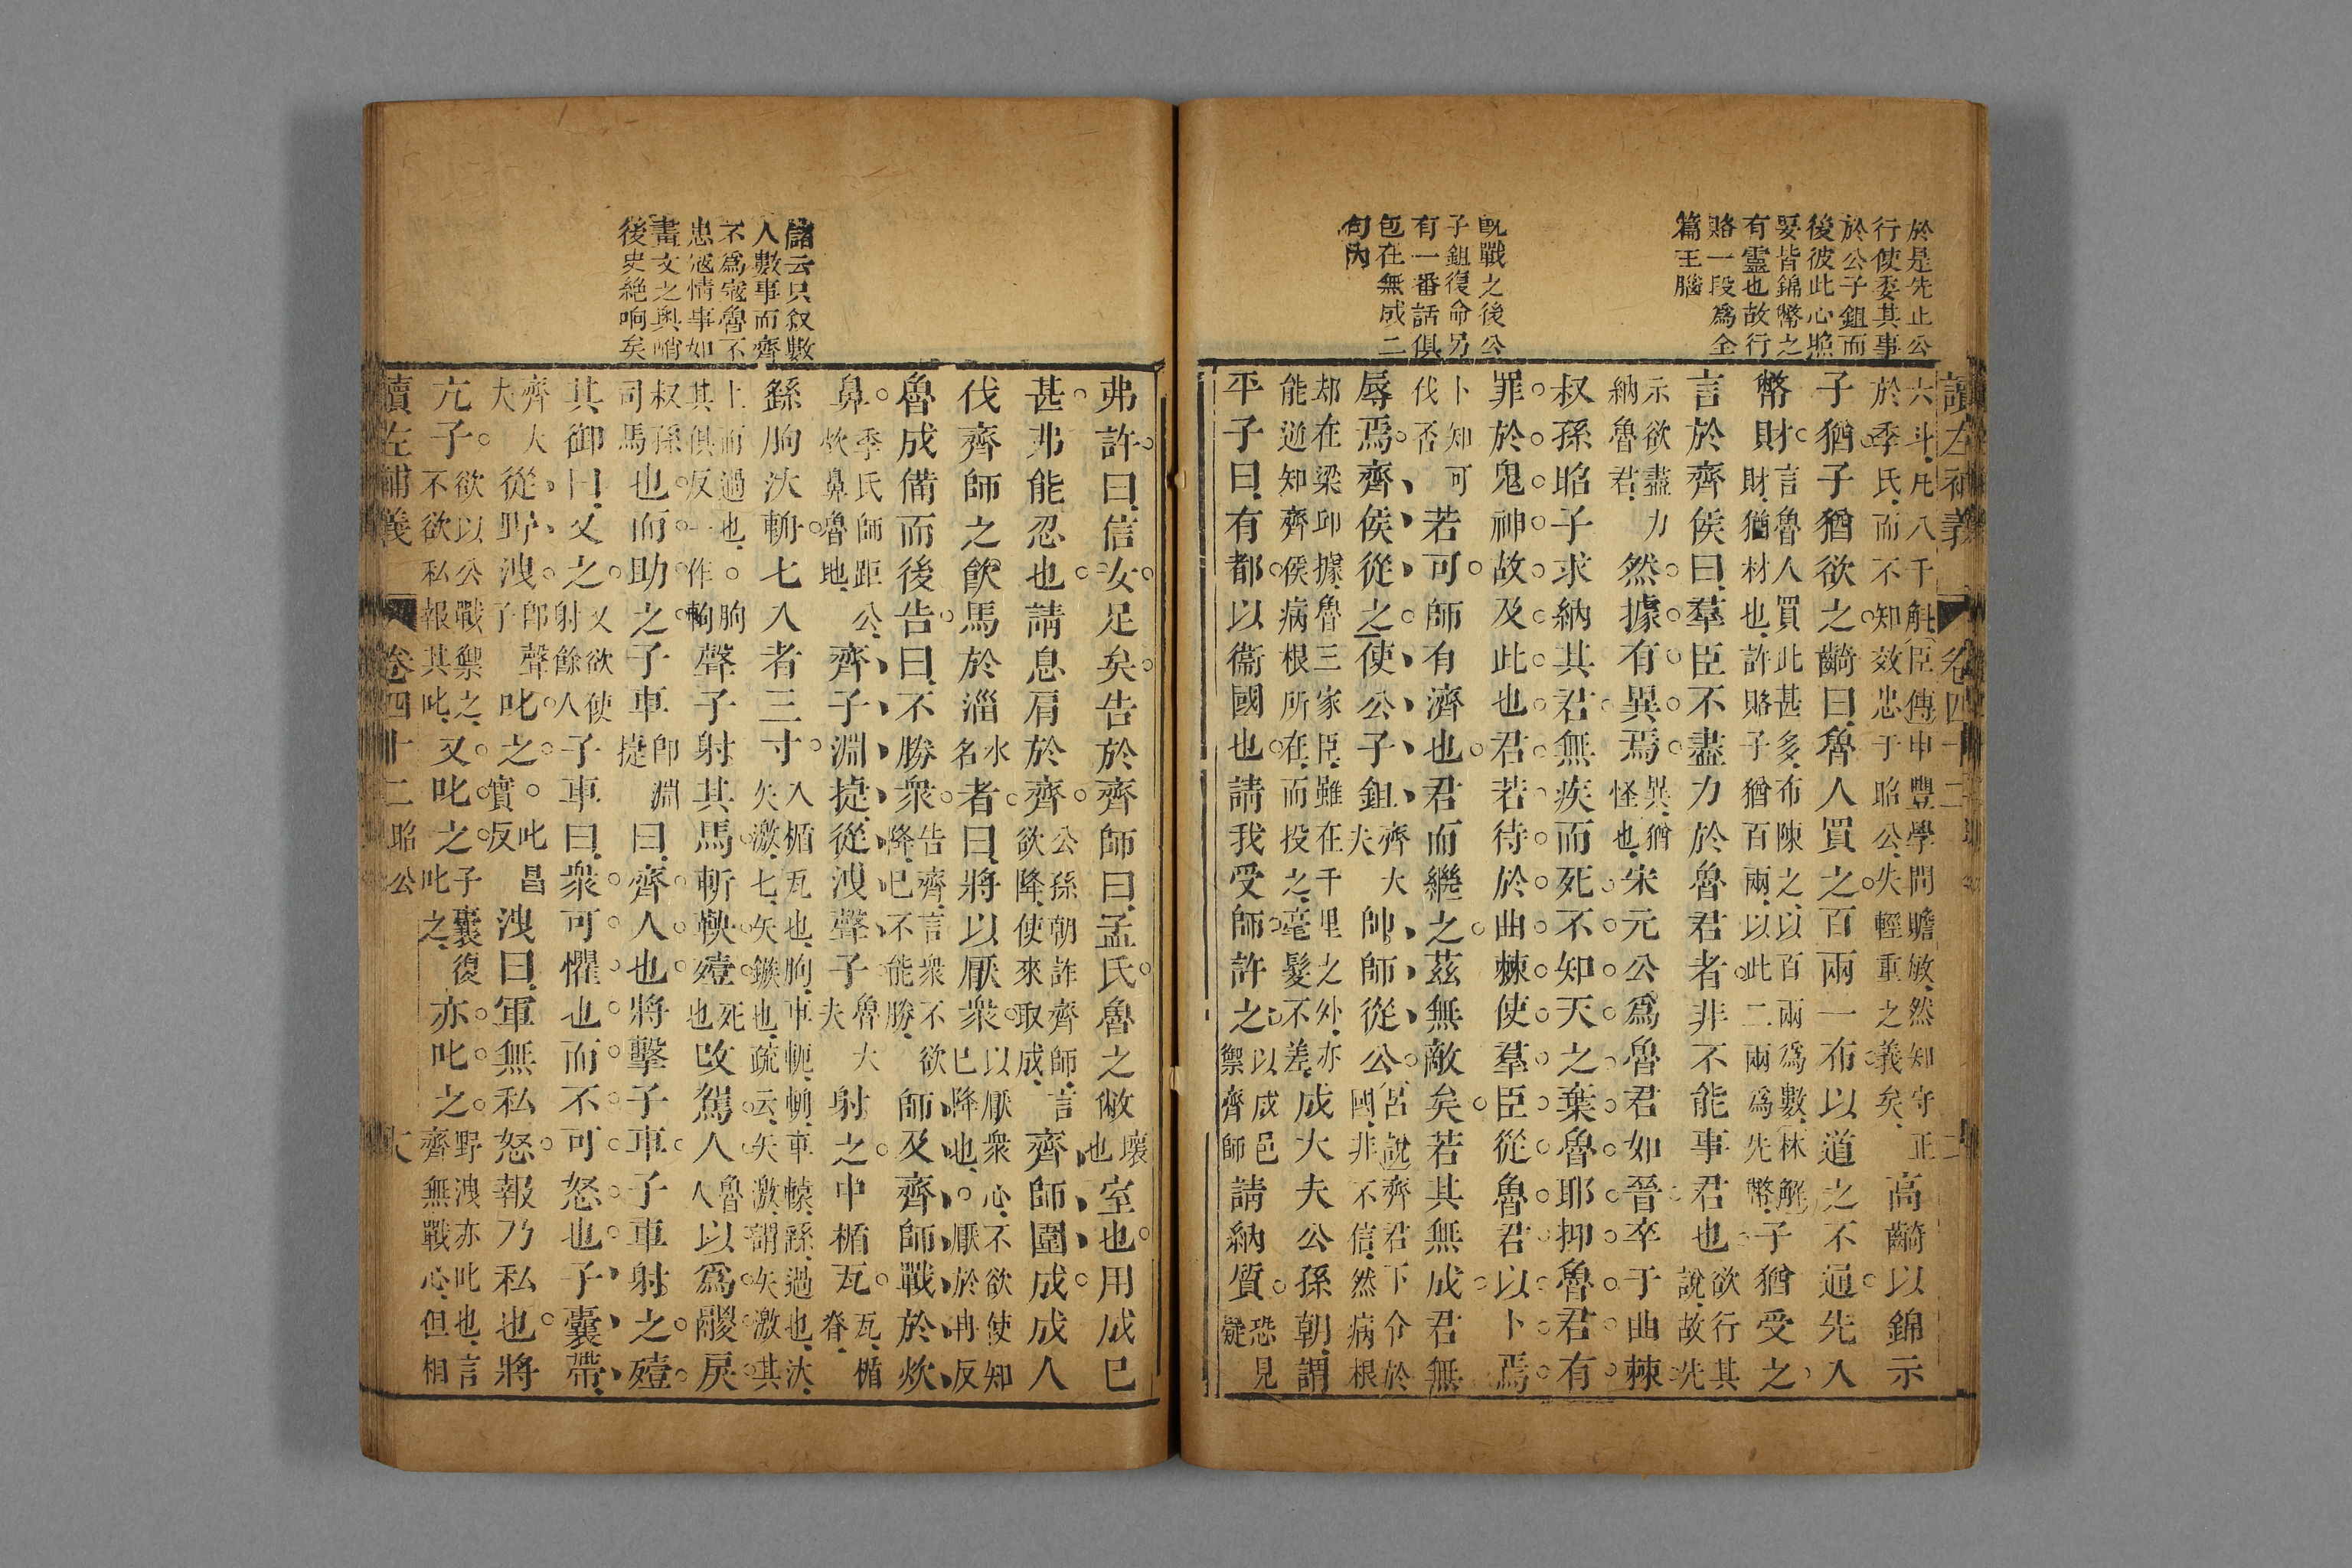 於是先止公
行使委其事
於公子鉏而
後彼此心照
要皆錦幣之
有靈也故行
賂一段爲全
篇主腦
既戰之後公
子鉏復命另
有一番話俱
包在無成二
句內
讀左補義 卷四十二
六斗凡八千斛臣傳申豐學問瞻敏然知守正
於季氏而不知效忠于昭公失輕重之義矣
高齮以錦示
子猶子猶欲之齮曰魯人買之百兩一布以道之不通先入
幣財
言魯人買此甚多布陳之以百兩爲數林解
財猶材也許賂子猶百兩以此二兩爲先幣
子猶受之
言於齊侯曰羣臣不盡力於魯君者非不能事君也
欲行其
說故先
示欲盡力
納魯君
然據有異焉
異猶
怪也
宋元公爲魯君如晉卒于曲棘
叔孫昭子求納其君無疾而死不知天之棄魯耶抑魯君有
罪於鬼神故及此也君若待於曲棘使羣臣從魯君以卜焉
卜知可
伐否
若可師有濟也君而繼之茲無敵矣若其無成君無
辱焉齊侯從之使公子鉏
齊大
夫
帥師從公
說齊君下令於
國非不信然病根
却在梁邱據魯三家臣雖在千里之外亦
能逆知齊侯病根所在而投之毫髮不差
成大夫公孫朝謂
平子曰有都以衞國也請我受師許之
以成邑
禦齊師
請納質
恐見
疑
儲云只叙數
人數事而齊
不爲寇魯不
忠寇情事如
畫文之輿峭
後史絶响矣
弗許曰信女足矣告於齊師曰孟氏魯之敝
壞
也
室也用成已
甚弗能忍也請息肩於齊
公孫朝詐齊師言
欲降使來取成
齊師圍成成人
伐齊師之飲馬於淄
水
名
者曰將以厭衆
以厭衆心不欲使知
已降也。厭於冉反
魯成備而後告曰不勝衆
告齊言衆不欲
降已不能勝
師及齊師戰於炊
鼻
季氏師距公
炊鼻魯地
齊子淵捷從洩聲子
魯大
夫
射之中楯瓦
瓦楯
脊
繇朐汏輈七入者三寸
入楯瓦也朐車軛輈車轅繇過也汏
矢激七矢鏃也疏云矢激謂矢激其
上而過也。朐
其俱反一作軥
聲子射其馬斬鞅殪
死
也
改駕人
魯
人
以爲鬷戾
叔孫
司馬
也而助之子車
即淵
捷
曰齊人也將擊子車子車射之殪
其御曰又之
又欲使
射餘人
子車曰衆可懼也而不可怒也子囊帶
齊大
夫
從野洩
即聲
子
叱之。
叱昌
實反
洩曰軍無私怒報乃私也將
亢子
欲以公戰禦之
不欲私報其叱
又叱之
子囊復
叱之
亦叱之
野洩亦叱也言
齊無戰心但相
讀左補義 卷四十二 昭公